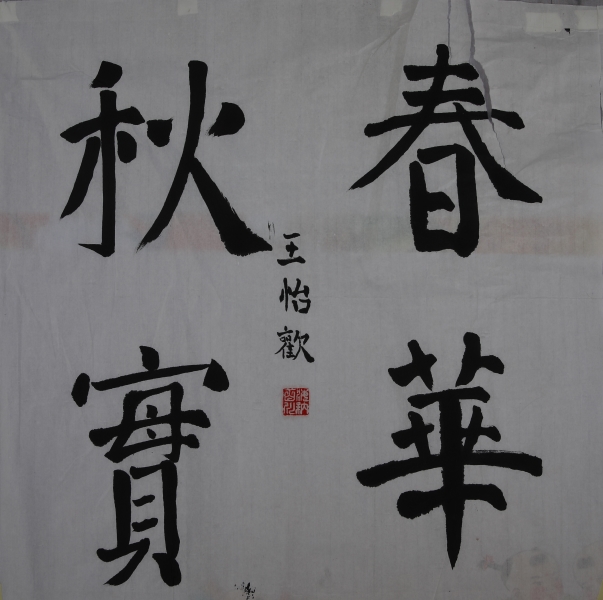 春華
秋實
王怡歡